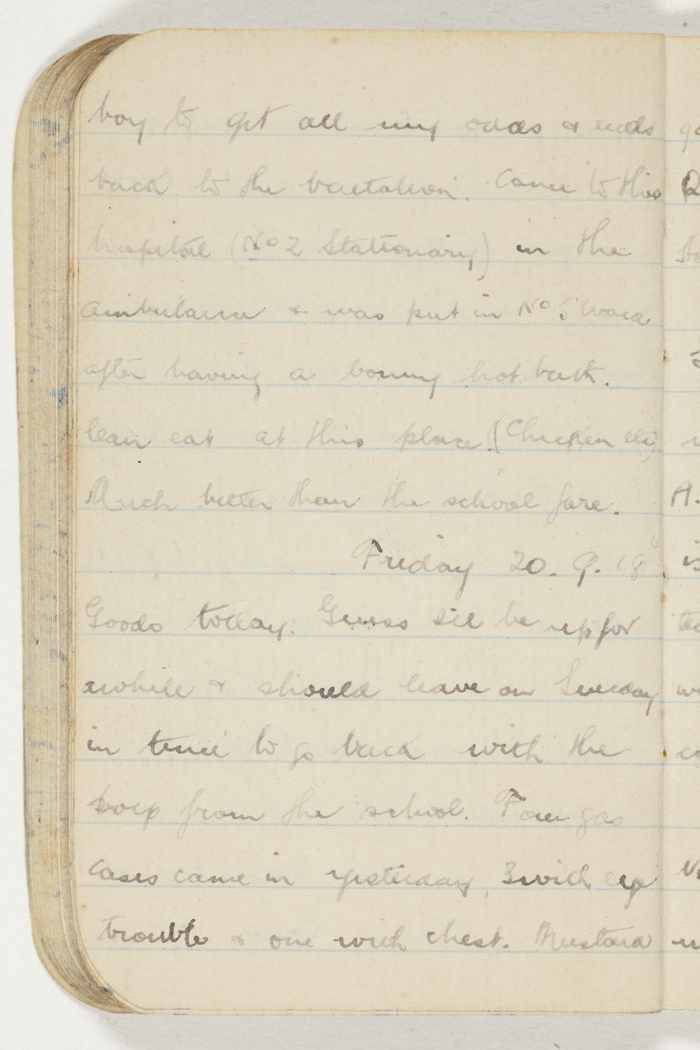 boy to get all my odds & ends
back to the battalion. Came to this
hospital (No 2 Stationary) in the
ambulance & was put in No 5 Ward
after having a bonny hot bath.
Can eat at this place (Chicken etc)
Much better than the school fare.
Friday 20. 9. 18
Goods today. Guess I'll be up for
awhile & should leave on Sunday
in time to go back with the
boys from the school. Four gas
cases came in yesterday, 3 with eye
trouble & one with chest. Mustard